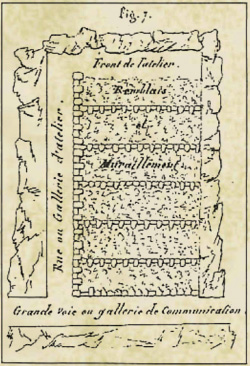 fig. 7.
Front de l'atelier.
Remblais
et
Muraillement
Rue ou Gallerie d'atelier.
Grande Voie ou gallerie de Communication